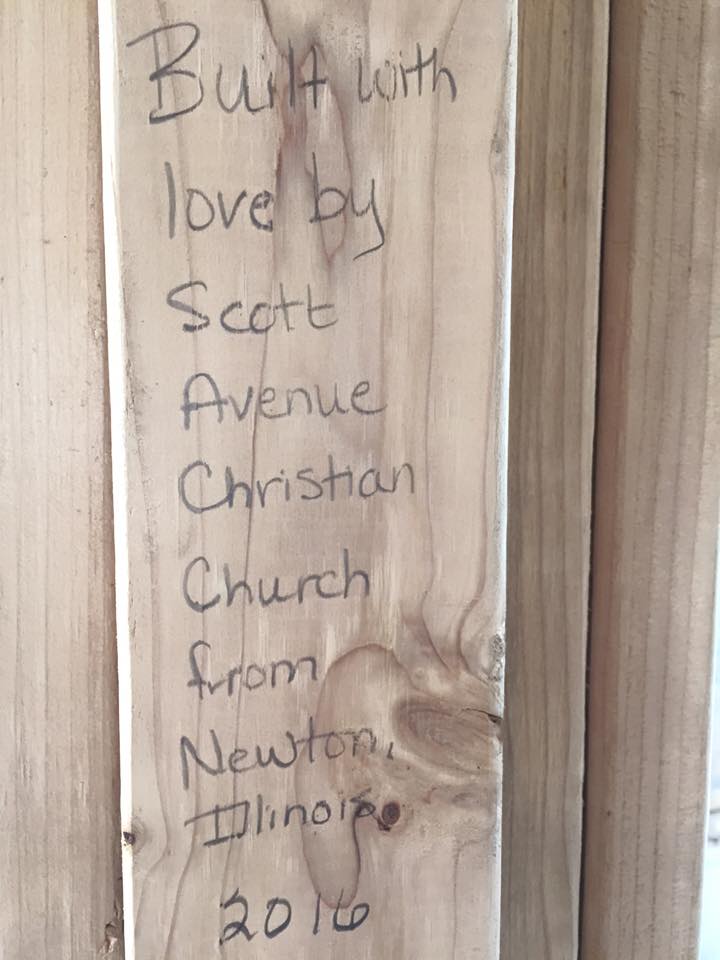 Built with
love by
Scott
Avenue
Christian
Church
from
Newton,
Illinois
2016